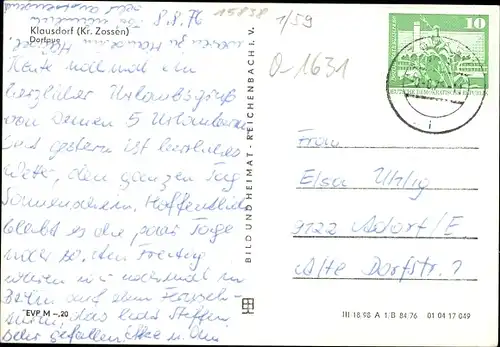 8.8.76
15838
1/59
O-1631
Klausdorf (Kr. Zossen)
Dorfaue
Heute nochmal ein
herzlicher Urlaubsgruß
von Deinen 5 Urlaubern
Seit gestern ist herrliches
Wetter, den ganzen Tag
Sonnenschein. Hoffentlich
bleibt es die paar Tage
noch so. Am Freitag
waren wir nochmal in
Berlin auf dem Fernseh-
turm, das hat Steffen
sehr gefallen.
EVP M –,20
BILD UND HEIMAT · REICHENBACH i. V.
10
DEUTSCHE DEMOKRATISCHE REPUBLIK
Frau
Elsa Uhlig
9122 Adorf/E.
Alte Dorfstr. 7
III 18 98 A 1/B 84/76 01 04 17 049